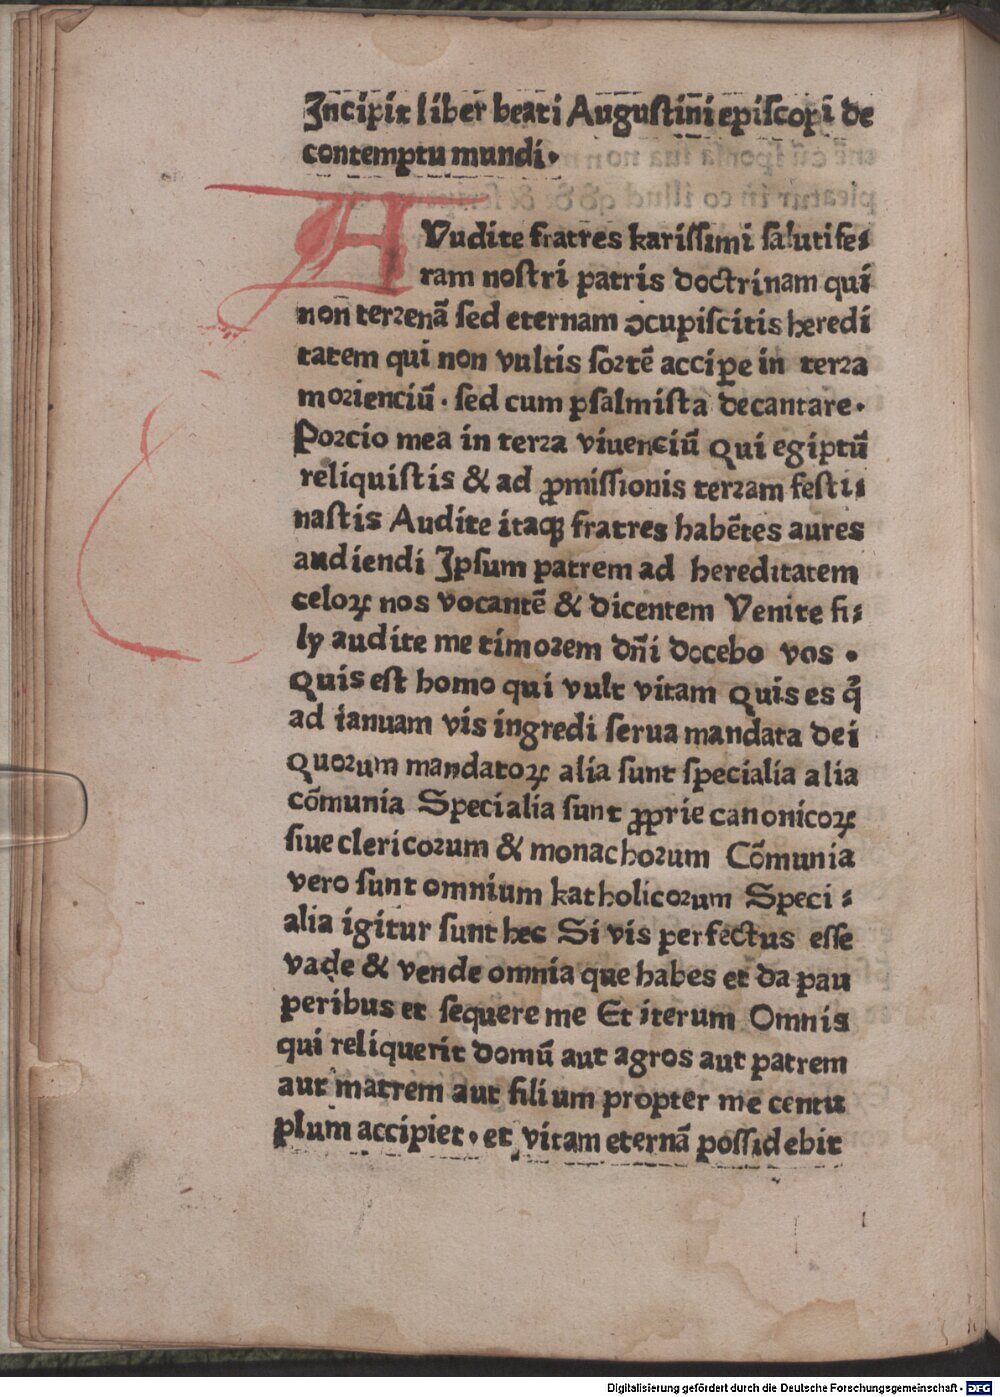 Incipit liber beati Augustini episcopi de
contemptu mundi.
AVudite fratres karissimi salutife⸗
ram nostri patris doctrinam qui
non terrenā sed eternam ↄcupiscitis heredi
tatem qui non vultis sortē accipe in terra
morienciū . sed cum psalmista decantare.
Porcio mea in terra viuenciū Qui egiptū
reliquistis & ad ꝓmissionis terram festi⸗
nastis Audite itaqꝫ fratres habētes aures
audiendi Ipsum patrem ad hereditatem
celoꝝ nos vocantē & dicentem Venite fi⸗
ly audite me timorem dn̄i docebo vos .
Quis est homo qui vult vitam Quis es q̄
ad ianuam vis ingredi serua mandata dei
Quorum mandatoꝝ alia sunt specialia alia
cōmunia Specialia sunt ꝓprie canonicoꝝ
siue clericorum & monachorum Cōmunia
vero sunt omnium katholicorum Speci⸗
alia igitur sunt hec Si vis perfectus esse
vade & vende omnia que habes et da pau
peribus et sequere me Et iterum Omnis
qui reliquerit domū aut agros aut patrem
aut matrem aut filium propter me centu
plum accipiet . et vitam eternā possidebit
Digitalisierung gefördert durch die Deutsche Forschungsgemeinschaft - DFG